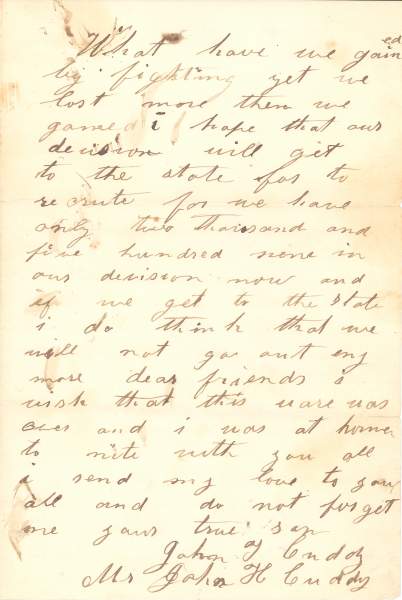 What have we gained
by fighting yet we
lost more then we
gamed i hope that our
decision will get
to the state for to
recrute for we have
only two thousand and
five hundred mene in
our decision now and
if we get to the state
i do think that we
will not go out eny
more dear friends i
wish that this ware was
over and i was at home
to nite with you all
i send my love to you
all and do not forget
me your true son
John Cuddy
Mr John H Cuddy